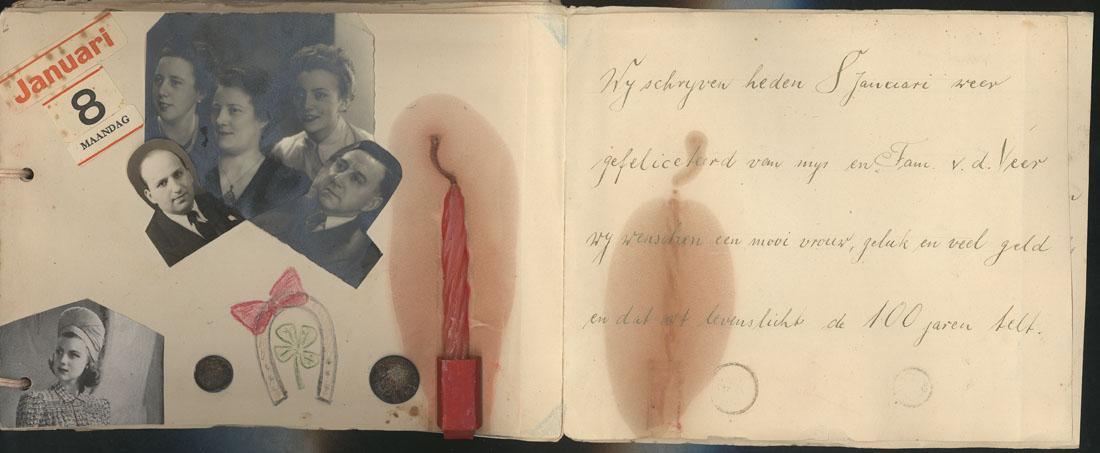 Januari
8
MAANDAG
Wij schrijven heden 8 Januari weer
gefeliceteerd van mijs en Fam. v. d. Veer
wij wenschen een mooi vrouw, geluk en veel geld
en dat et levenslicht de 100 jaren telt.